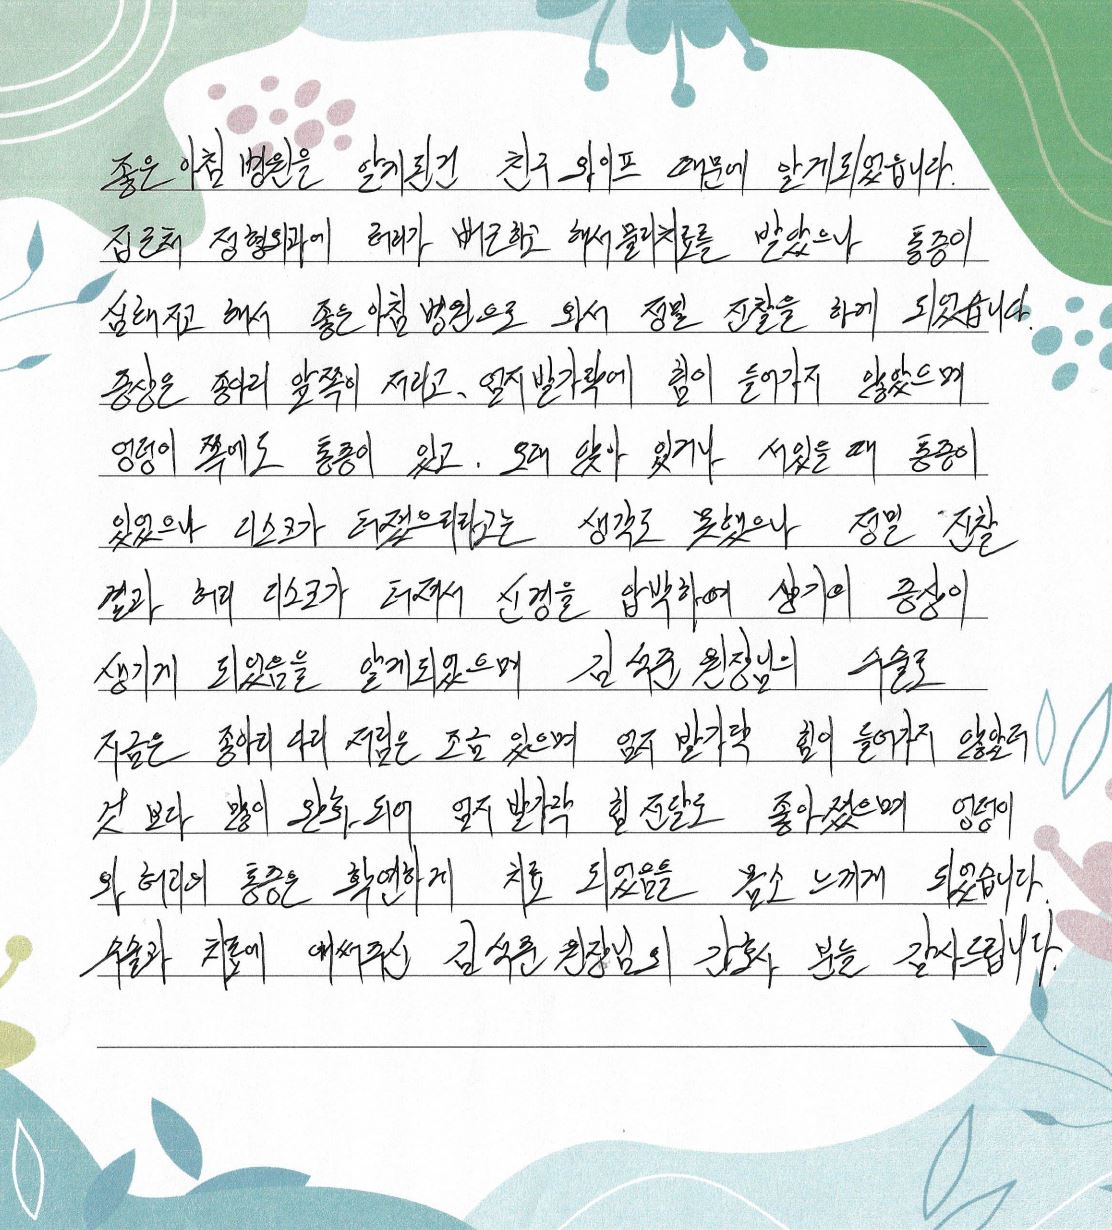 좋은아침 병원을 알게된건 친구 와이프 때문에 알게되었읍니다.
집근처 정형외과에 허리가 뻐근하고 해서 물리치료를 받았으나 통증이
심해지고 해서 좋은아침 병원으로 와서 정밀 진찰을 하게 되었습니다.
증상은 종아리 앞쪽이 저리고, 엄지발가락에 힘이 들어가지 않았으며
엉덩이 쪽에도 통증이 있고. 오래 앉아 있거나 서있을 때 통증이
있었으나 디스크가 터졌으리라고는 생각도 못했으나 정밀 진찰
결과 허리 디스크가 터져서 신경을 압박하여 상기의 증상이
생기게 되었음을 알게되었으며 김석준 원장님의 수술로
지금은 종아리 다리 저림은 조금 있으며 엄지 발가락 힘이 들어가지 않았던
것 보다 많이 완화 되어 엄지 발가락 힘 전달도 좋아졌으며 엉덩이
와 허리의 통증은 확연하게 치료 되었음을 몸소 느끼게 되었습니다.
수술과 치료에 애써주신 김석준 원장님 외 간호사 분들 감사드립니다.